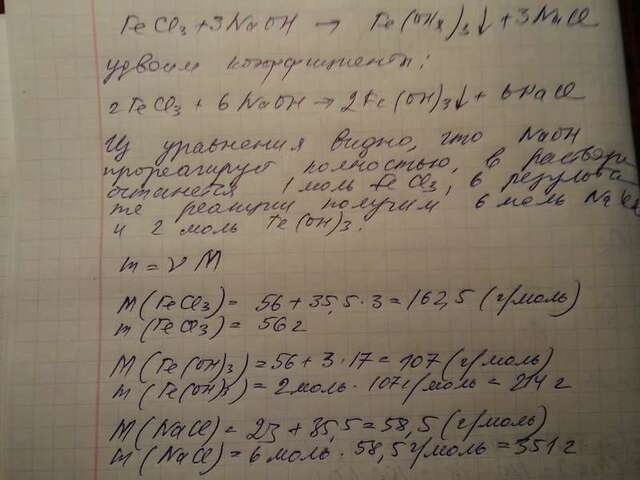 FeCl₃ + 3NaOH → Fe(OH)₃↓ + 3NaCl
удвоим коэффициенты:
2FeCl₃ + 6NaOH → 2Fe(OH)₃↓ + 6NaCl
Из уравнения видно, что NaOH
прореагирует полностью, в растворе
останется 1 моль FeCl₃, в результа
те реакции получим 6 моль NaCl
и 2 моль Fe(OH)₃.
m = ν M
M(FeCl₃) = 56 + 35,5 · 3 = 162,5 (г/моль)
m(FeCl₃) = 56 г
M(Fe(OH)₃) = 56 + 3 · 17 = 107 (г/моль)
m(Fe(OH)₃) = 2 моль · 107 г/моль = 214 г
M(NaCl) = 23 + 35,5 = 58,5 (г/моль)
m(NaCl) = 6 моль · 58,5 г/моль = 351 г